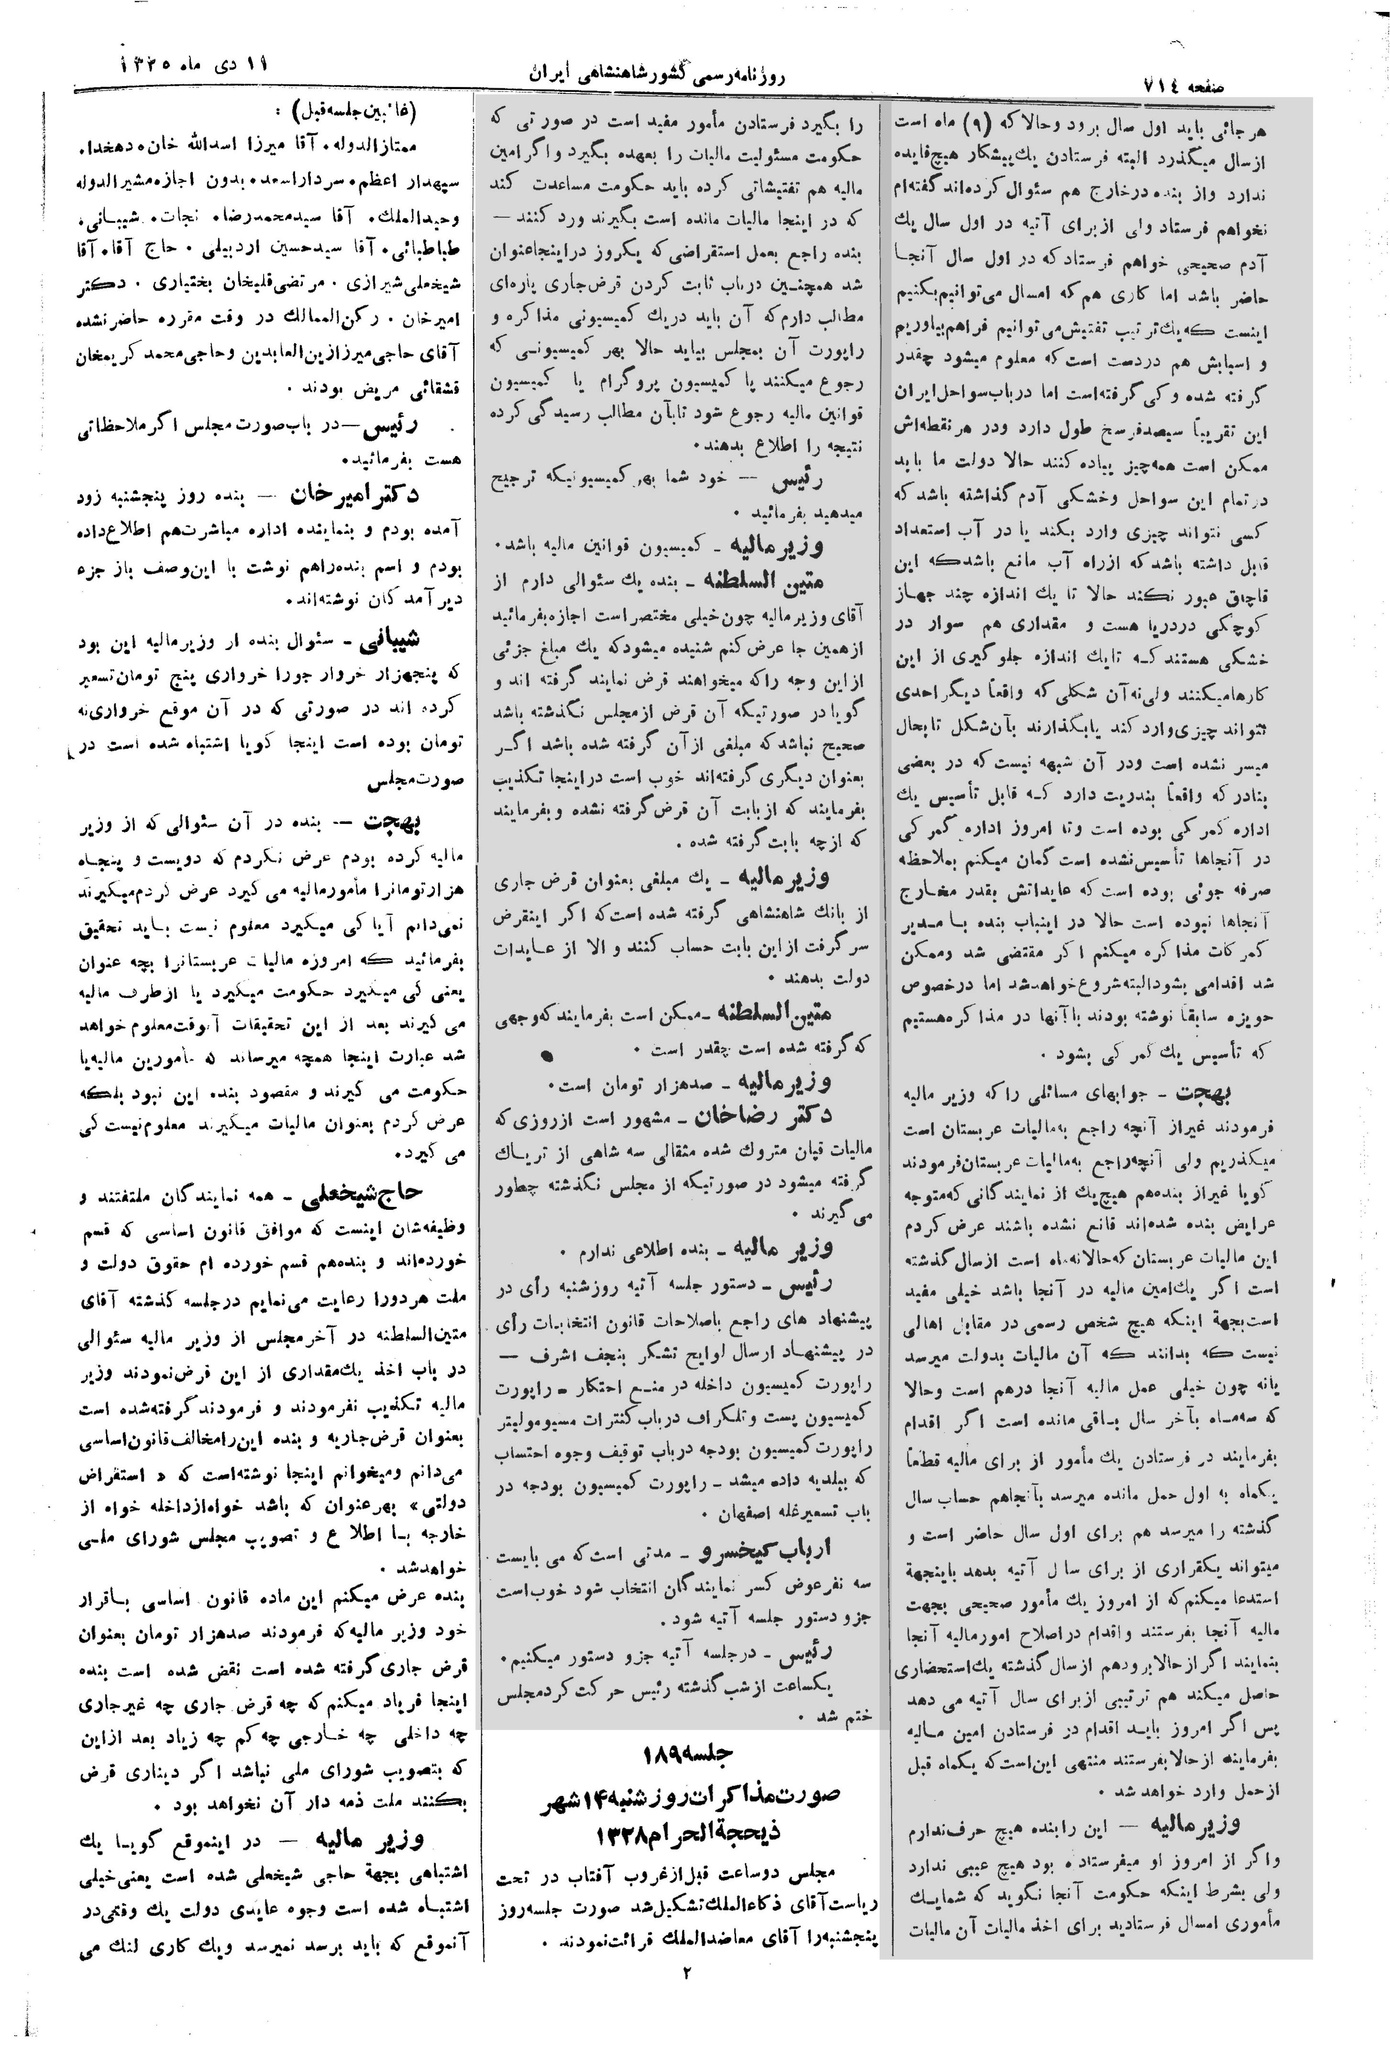 صفحه ۷۱٤
روزنامه رسمی کشور شاهنشاهی ایران
۱۱ دی ماه ۱۳۲۵
هرجائی باید اول سال برود وحالا که (۹) ماه است
از سال میگذرد البته فرستادن یك پیشکار هیچ فایده
ندارد واز بنده درخارج هم سئوال کرده‌اند گفته‌ام
نخواهم فرستاد ولی از برای آتیه در اول سال یك
آدم صحیحی خواهم فرستاد که در اول سال آنجا
حاضر باشد اما کاری هم که امسال می‌توانیم بکنیم
اینست که یك ترتیب تفتیش می‌توانیم فراهم بیاوریم
و اسبابش هم دردست است که معلوم میشود چقدر
گرفته شده و کی گرفته‌است اما در باب سواحل ایران
این تقریباً سیصد فرسخ طول دارد ودر هر نقطه‌اش
ممکن است همه‌چیز پیاده کنند حالا دولت ما باید
در تمام این سواحل وخشکی آدم گذاشته باشد که
کسی نتواند چیزی وارد بکند یا در آب استعداد
قابل داشته باشد که از راه آب مانع باشد که این
قاچاق عبور نکند حالا تا یك اندازه چند جهاز
کوچکی در دریا هست و مقداری هم سوار در
خشکی هستند که تا یك اندازه جلوگیری از این
کارها میکنند ولی نه آن شکلی که واقعاً دیگر احدی
نتواند چیزی وارد کند یا بگذارند بآن شکل تا بحال
میسر نشده است ودر آن شبهه نیست که در بعضی
بنادر که واقعاً بندریت دارد که قابل تأسیس یك
اداره گمرکی بوده است وتا امروز اداره گمرکی
در آنجاها تأسیس نشده است گمان میکنم بملاحظه
صرفه جوئی بوده است که عایداتش بقدر مخارج
آنجاها نبوده است حالا در اینباب بنده با مدیر
گمرکات مذاکره میکنم اگر مقتضی شد وممکن
شد اقدامی بشود البته شروع خواهد شد اما درخصوص
حویزه سابقاً نوشته بودند با آنها در مذاکره هستیم
که تأسیس یك گمرکی بشود .
بهجت - جوابهای مسائلی را که وزیر مالیه
فرمودند غیر از آنچه راجع به مالیات عربستان است
میگذریم ولی آنچه راجع به مالیات عربستان فرمودند
گویا غیر از بنده هم هیچ یك از نمایندگانی که متوجه
عرایض بنده شده‌اند قانع نشده باشند عرض کردم
این مالیات عربستان که حالا نه ماه است از سال گذشته
است اگر یك امین مالیه در آنجا باشد خیلی مفید
است بجهة اینکه هیچ شخص رسمی در مقابل اهالی
نیست که بدانند که آن مالیات بدولت میرسد
یا نه چون خیلی عمل مالیه آنجا درهم است وحالا
که سه ماه بآخر سال باقی مانده است اگر اقدام
بفرمایند در فرستادن یك مأمور از برای مالیه قطعاً
یکماه به اول حمل مانده میرسد بآنجا هم حساب سال
گذشته را میرسد هم برای اول سال حاضر است و
میتواند یکقراری از برای سال آتیه بدهد باینجهة
استدعا میکنم که از امروز یك مأمور صحیحی بجهت
مالیه آنجا بفرستند و اقدام در اصلاح امور مالیه آنجا
بنمایند اگر از حالا برود هم از سال گذشته یك استحضاری
حاصل میکند هم ترتیبی از برای سال آتیه می دهد
پس اگر امروز باید اقدام در فرستادن امین مالیه
بفرمایند از حالا بفرستند منتهی این است که یکماه قبل
از حمل وارد خواهد شد .
وزیر مالیه — این را بنده هیچ حرف ندارم
واگر از امروز او میفرستاده بود هیچ عیبی ندارد
ولی بشرط اینکه حکومت آنجا نگوید که شما یك
مأموری امسال فرستادید برای اخذ مالیات آن مالیات
را بگیرد فرستادن مأمور مفید است در صورتی که
حکومت مسئولیت مالیات را بعهده بگیرد واگر امین
مالیه هم تفتیشاتی کرده باید حکومت مساعدت کند
که در اینجا مالیات مانده است بگیرند ورد کنند —
بنده راجع بعمل استقراضی که یکروز در اینجا عنوان
شد همچنین درباب ثابت کردن قرض جاری پاره‌ای
مطالب دارم که آن باید در یك کمیسیونی مذاکره و
راپورت آن بمجلس بیاید حالا بهر کمیسیونی که
رجوع میکنند یا کمیسیون پروگرام یا کمیسیون
قوانین مالیه رجوع شود تا بآن مطالب رسیدگی کرده
نتیجه را اطلاع بدهند.
رئیس — خود شما بهر کمیسیونیکه ترجیح
میدهید بفرمائید .
وزیر مالیه - کمیسیون قوانین مالیه باشد.
متین السلطنه - بنده یك سئوالی دارم از
آقای وزیر مالیه چون خیلی مختصر است اجازه بفرمائید
از همین جا عرض کنم شنیده میشود که یك مبلغ جزئی
از این وجه را که میخواهند قرض نمایند گرفته اند و
گویا در صورتیکه آن قرض از مجلس نگذشته باشد
صحیح نباشد که مبلغی از آن گرفته شده باشد اگر
بعنوان دیگری گرفته‌اند خوب است در اینجا تکذیب
بفرمایند که از بابت آن قرض گرفته نشده و بفرمایند
که از چه بابت گرفته شده .
وزیر مالیه - یك مبلغی بعنوان قرض جاری
از بانك شاهنشاهی گرفته شده است که اگر اینقرض
سر گرفت از این بابت حساب کنند و الا از عایدات
دولت بدهند .
متین السلطنه - ممکن است بفرمایند که وجهی
که گرفته شده است چقدر است .
وزیر مالیه - صدهزار تومان است.
دکتر رضاخان - مشهور است از روزی که
مالیات قپان متروك شده مثقالی سه شاهی از تریاك
گرفته میشود در صورتیکه از مجلس نگذشته چطور
می‌گیرند .
وزیر مالیه - بنده اطلاعی ندارم .
رئیس - دستور جلسه آتیه روز شنبه رأی در
پیشنهاد های راجع باصلاحات قانون انتخابات رأی
در پیشنهاد ارسال لوایح تشکر بنجف اشرف —
راپورت کمیسیون داخله در منع احتکار - راپورت
کمیسیون پست و تلگراف درباب کنترات مسیو مولیتر
راپورت کمیسیون بودجه درباب توقیف وجوه احتساب
که ببلدیه داده میشد - راپورت کمیسیون بودجه در
باب تسعیر غله اصفهان .
ارباب کیخسرو - مدتی است که می بایست
سه نفر عوض کسر نمایندگان انتخاب شود خوب است
جزو دستور جلسه آتیه شود .
رئیس - در جلسه آتیه جزو دستور میکنیم.
یکساعت از شب گذشته رئیس حرکت کرد مجلس
ختم شد .
جلسه ۱۸۹
صورت مذاکرات روز شنبه ۱۴ شهر
ذیحجة الحرام ۱۳۲۸
مجلس دوساعت قبل از غروب آفتاب در تحت
ریاست آقای ذکاءالملك تشکیل شد صورت جلسه روز
پنجشنبه را آقای معاضد الملك قرائت نمودند .
(غائبین جلسه قبل) :
ممتازالدوله. آقا میرزا اسدالله خان. دهخدا.
سپهدار اعظم. سردار اسعد. بدون اجازه مشیرالدوله
وحیدالملك. آقا سید محمدرضا. نجات. شیبانی.
طباطبائی. آقا سید حسین اردبیلی . حاج آقا. آقا
شیخعلی شیرازی. مرتضی قلیخان بختیاری . دکتر
امیرخان . رکن‌الممالك در وقت مقرره حاضر نشده
آقای حاجی میرزا زین‌العابدین وحاجی محمد کریمخان
قشقائی مریض بودند .
رئیس — در باب صورت مجلس اگر ملاحظاتی
هست بفرمائید.
دکتر امیرخان — بنده روز پنجشنبه زود
آمده بودم و بنماینده اداره مباشرت هم اطلاع داده
بودم و اسم بنده راهم نوشت با این وصف باز جزء
دیر آمدگان نوشته‌اند.
شیبانی - سئوال بنده از وزیر مالیه این بود
که پنجهزار خروار جو را خرواری پنج تومان تسعیر
کرده اند در صورتی که در آن موقع خرواری نه
تومان بوده است اینجا گویا اشتباه شده است در
صورت مجلس
بهجت — بنده در آن سئوالی که از وزیر
مالیه کرده بودم عرض نکردم که دویست و پنجاه
هزار تومانرا مأمور مالیه می گیرد عرض کردم میگیرند
نمی‌دانم آیا کی میگیرد معلوم نیست باید تحقیق
بفرمائید که امروزه مالیات عربستانرا بچه عنوان
یعنی کی میگیرد حکومت میگیرد یا از طرف مالیه
می گیرند بعد از این تحقیقات آنوقت معلوم خواهد
شد عبارت اینجا همچه میرساند که مأمورین مالیه یا
حکومت می گیرند و مقصود بنده این نبود بلکه
عرض کردم بعنوان مالیات میگیرند معلوم نیست کی
می گیرد.
حاج شیخعلی - همه نمایندگان ملتفتند و
وظیفه‌شان اینست که موافق قانون اساسی که قسم
خورده‌اند و بنده هم قسم خورده ام حقوق دولت و
ملت هر دو را رعایت می‌نمایم در جلسه گذشته آقای
متین السلطنه در آخر مجلس از وزیر مالیه سئوالی
در باب اخذ یك مقداری از این قرض نمودند وزیر
مالیه تکذیب نفرمودند و فرمودند گرفته شده است
بعنوان قرض جاریه و بنده این را مخالف قانون اساسی
می‌دانم ومیخوانم اینجا نوشته است که « استقراض
دولتی» بهر عنوان که باشد خواه از داخله خواه از
خارجه با اطلاع و تصویب مجلس شورای ملی
خواهد شد .
بنده عرض میکنم این ماده قانون اساسی باقرار
خود وزیر مالیه که فرمودند صدهزار تومان بعنوان
قرض جاری گرفته شده است نقض شده است بنده
اینجا فریاد میکنم که چه قرض جاری چه غیر جاری
چه داخلی چه خارجی چه کم چه زیاد بعد از این
که بتصویب شورای ملی نباشد اگر دیناری قرض
بکنند ملت ذمه دار آن نخواهد بود .
وزیر مالیه — در اینموقع گویا یك
اشتباهی بجهة حاجی شیخعلی شده است یعنی خیلی
اشتباه شده است وجوه عایدی دولت یك وقتی در
آنموقع که باید برسد نمیرسد ویك کاری لنگ می
۲